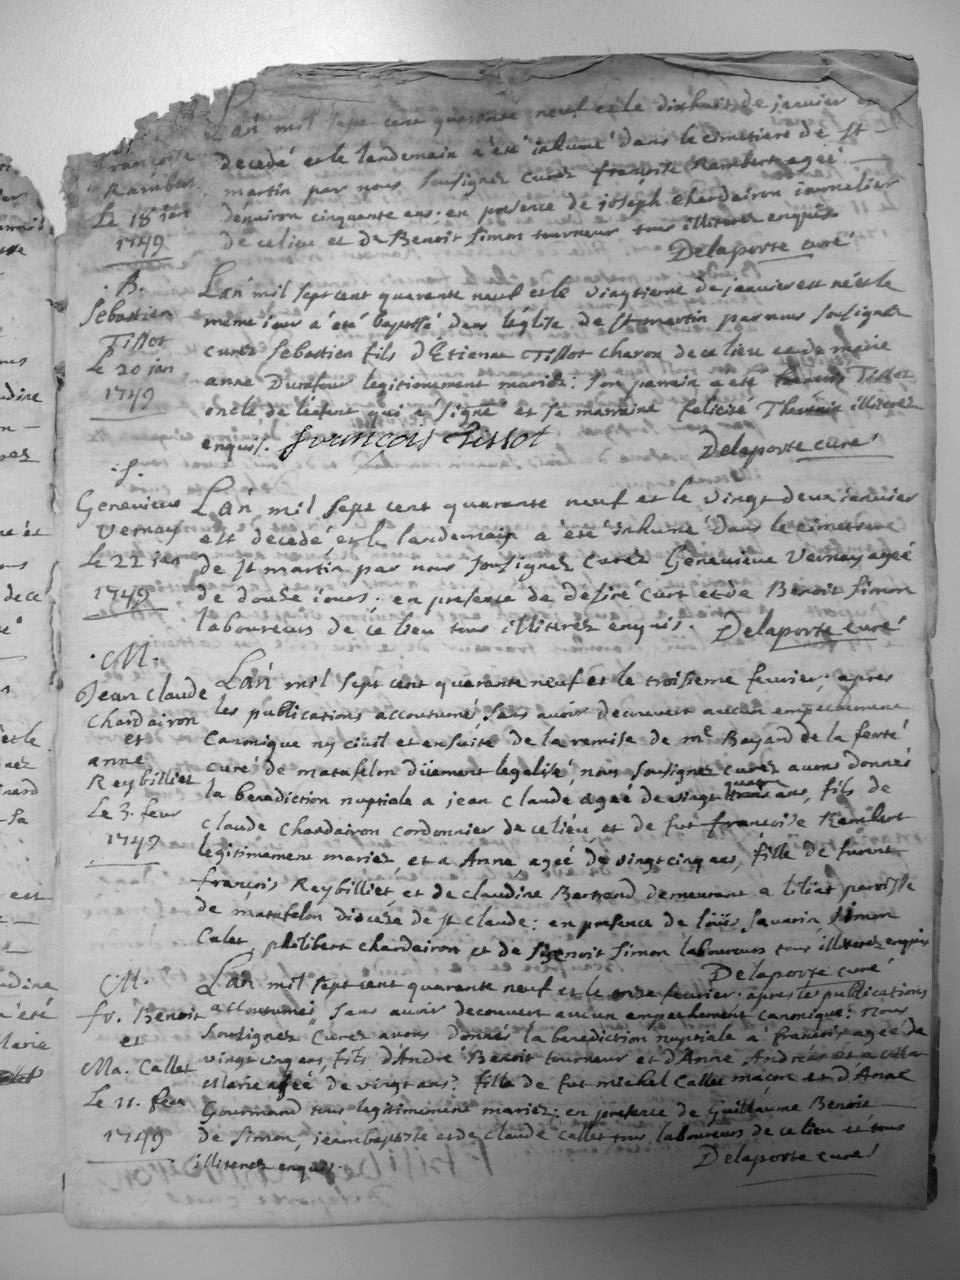 L'an mil sept cent quarante neuf et le dixhuit de janvier est
françoise
Rambert
Le 18 ian
1749
decedé et le landemain a été inhumé dans le cimetiere de st
martin par nous soussignez curez françoise Rambert ageé
d'enuiron cinquante ans: en presence de joseph chardairon iournelier
de ce lieu et de Benoit Simon tourneur tous illiterez enquis
Delaporte curé
.B.
Sebastien
Tissot
Le 20 jan
1749
L'an mil sept cent quarante neuf et le vingtieme de janvier est né et le
meme iour a été baptisé dans l'église de st martin par nous soussignez
curez Sebastien fils d'Etienne Tissot charon de ce lieu et de marie
anne Durafour legitimement mariez: son parrain a été françois Tissot
oncle de l'enfent qui a signé et sa marraine felicité Thevenin illiterez
enquis. françois tissot
Delaporte curé
.S.
Genevieve
Vernay
Le 22 ian
1749
L'an mil sept cent quarante neuf et le vingt deux ianvier
est decedé et le landemain a été inhumé dans le cimetiere
de st martin par nous soussignez curez Genevieve Vernay ageé
de douze iours. en presence de desiré Curt et de Benoit Simon
laboureurs de ce lieu tous illiterez enquis.
Delaporte curé
.M.
Jean Claude
Chardairon
et
anne
Reybilliet
Le 3. feur
1749
L'an mil sept cent quarante neuf et le troisieme feurier. apres
les publications accoutumé, sans avoir decouvert aucun empechement
Canonique ny civil et ensuite de la remise de mr. Bayard de la ferté
curé de matafelon düement legalisé nous soussignez curez avons donneé
la benediction nuptiale a jean Claude ageé de vingt quatre ans, fils de
Claude Chardairon cordonnier de ce lieu et de fut françoise Rambert
legitimement mariez, et a Anne ageé de vingtcinq ans, fille de furent
françois Reybilliet, et de claudine Bertrand demeurant a liliat paroisse
de matafelon diocèse de st Claude: en presence de loüis Savarin Simon
Calet, philibert chardairon et de Benoit Simon laboureurs tous illiterez enquis
Delaporte curé
.M.
fr. Benoit
et
Ma. Callet
Le 11. feur
1749
L'an mil sept cent quarante neuf et le onze feurier. apres les publications
accoutumeés sans avoir decouvert aucun empechement canonique: nous
soussignez Curez avons donneé la benediction nuptiale a françois ageé de
vingtcinq ans, fils d'André Benoit tourneur et d'Anne Andréas et a
Marie ageé de vingt ans: fille de fut michel Callet maçon et d'Anne
Gourmand tous legitimement mariez: en presence de Guillaume Benoit
de Simon, jeanbaptiste et de claude callet tous laboureurs de ce lieu et tous
illiterez enquis.
Delaporte curé